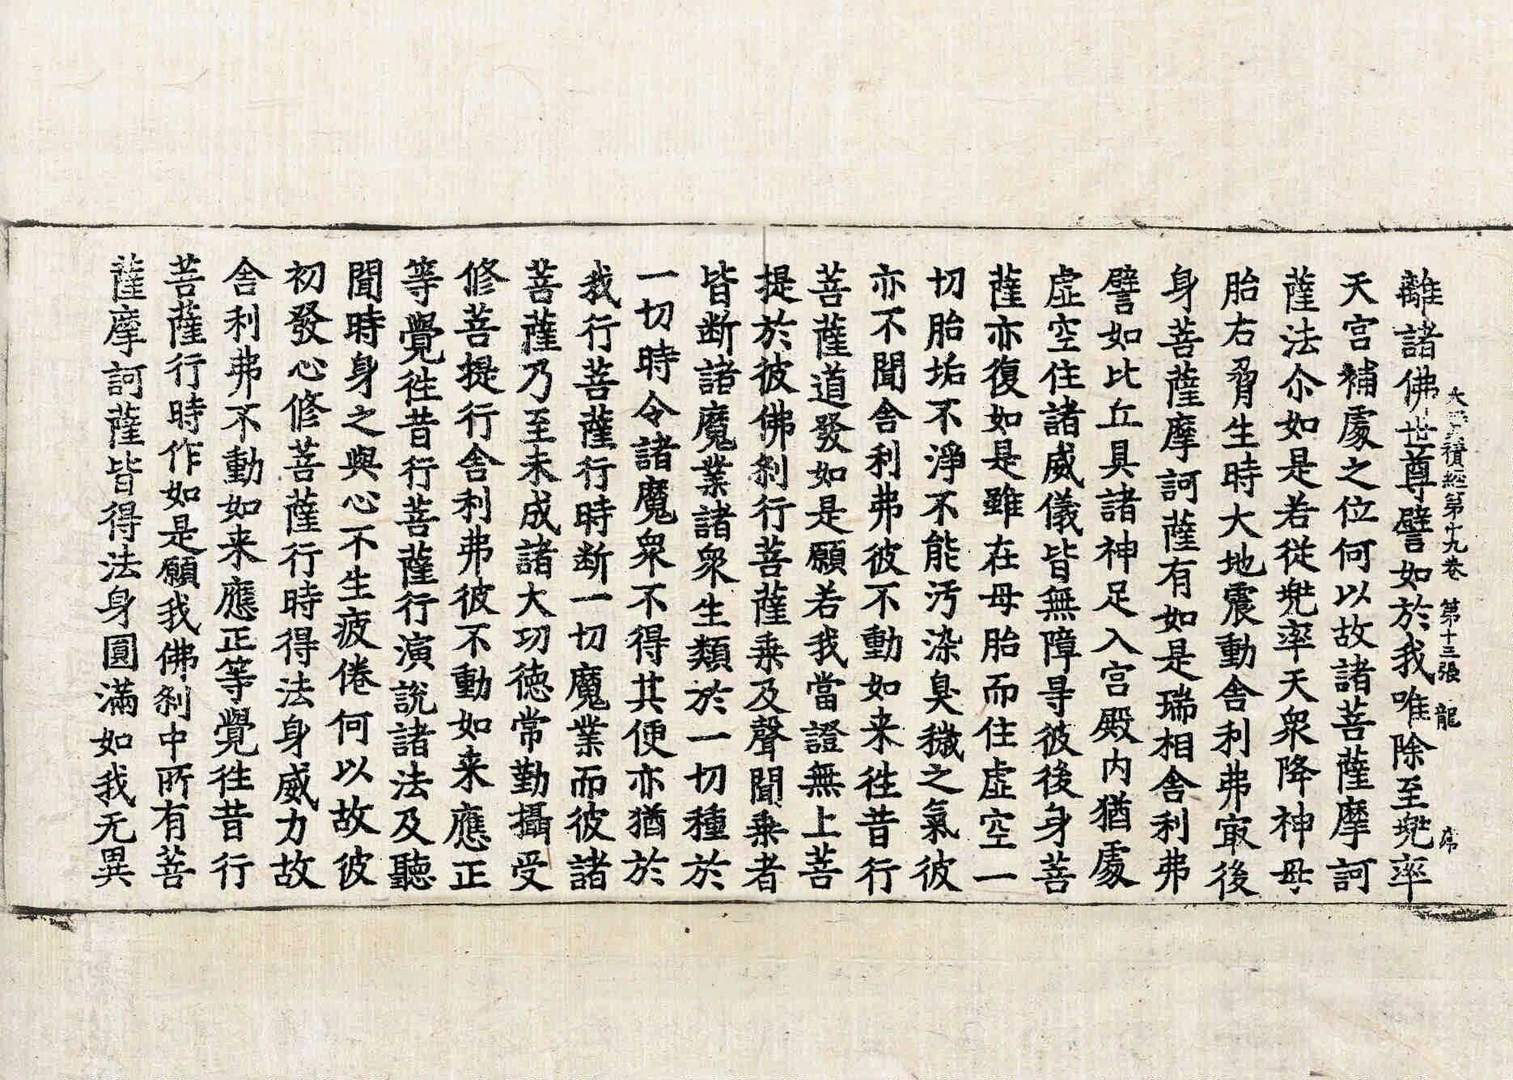 大寶積經第十九卷 第十三張 龍 席
離諸佛世尊譬如於我唯除至兠率
天宮補處之位何以故諸菩薩摩訶
薩法尒如是若從兠率天衆降神母
胎右脅生時大地震動舍利弗㝡後
身菩薩摩訶薩有如是瑞相舍利弗
譬如比丘具諸神足入宮殿内猶處
虛空住諸威儀皆無障㝵彼後身菩
薩亦復如是雖在母胎而住虛空一
切胎垢不淨不能汚染臭穢之氣彼
亦不聞舍利弗彼不動如来徃昔行
菩薩道發如是願若我當證無上菩
提於彼佛刹行菩薩乗及聲聞乗者
皆断諸魔業諸衆生類於一切種於
一切時令諸魔衆不得其便亦猶於
我行菩薩行時断一切魔業而彼諸
菩薩乃至未成諸大功徳常勤攝受
修菩提行舍利弗彼不動如来應正
等覺徃昔行菩薩行演說諸法及聽
聞時身之與心不生疲倦何以故彼
初發心修菩薩行時得法身威力故
舍利弗不動如来應正等覺徃昔行
菩薩行時作如是願我佛刹中所有菩
薩摩訶薩皆得法身圓滿如我无異